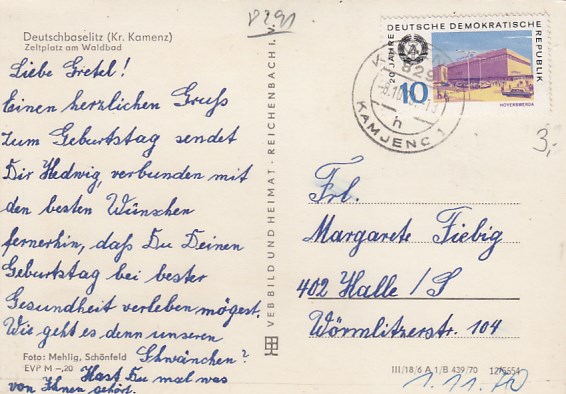 8291
Deutschbaselitz (Kr. Kamenz)
Zeltplatz am Waldbad
Liebe Gretel!
Einen herzlichen Gruß
zum Geburtstag sendet
Dir Hedwig, verbunden mit
den besten Wünschen
fernerhin, daß Du Deinen
Geburtstag bei bester
Gesundheit verleben mögest.
Wie geht es denn unseren
Schwänchen?
Hast Du mal was
von Ihnen gehört.
Foto: Mehlig, Schönfeld
EVP M –,20
VEB BILD UND HEIMAT · REICHENBACH i.
DEUTSCHE DEMOKRATISCHE
REPUBLIK
20 JAHRE
10
HOYERSWERDA
829
KAMJENC 1
h
3,-
Frl.
Margarete Fiebig
402 Halle / S
Wörmlitzerstr. 104
III/18/6 A 1/B 439/70 12/5554
1.11.70